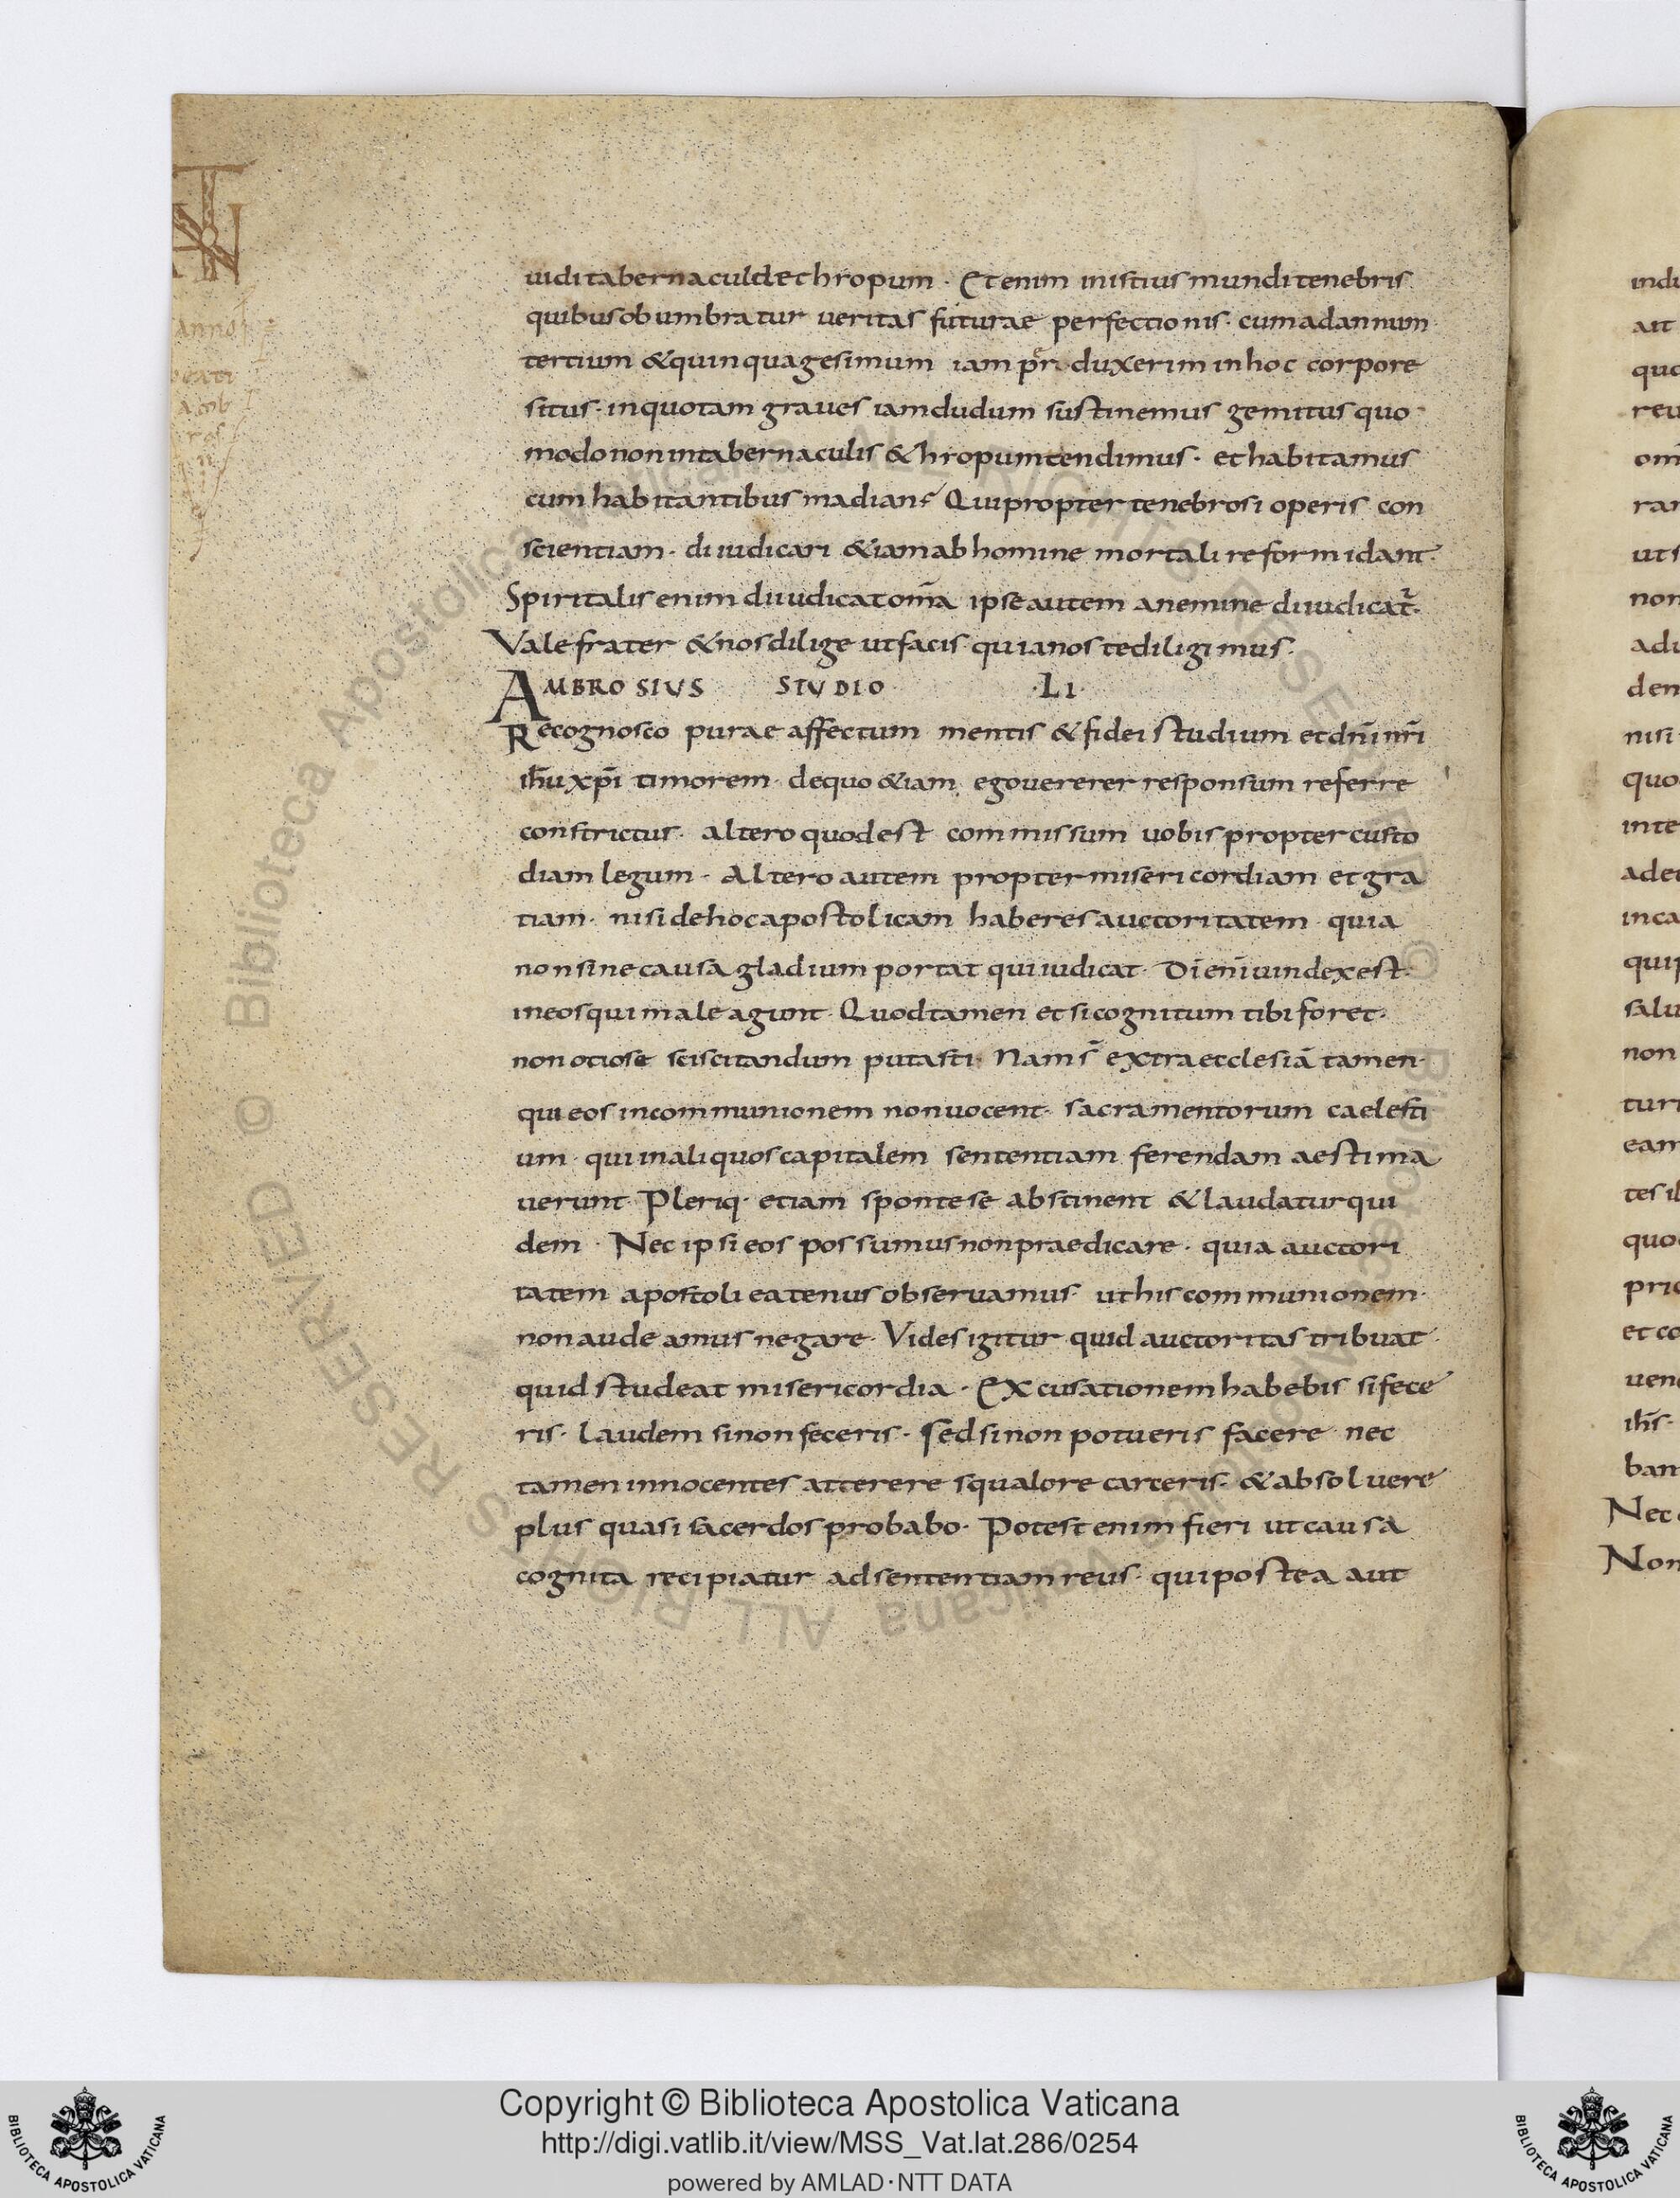 uidi tabernacula &ethropum · Et enim in istius mundi tenebris
quibus obumbratur ueritas futurae perfectionis · cum ad annum
tertium & quinquagesimum iam pr duxerim in hoc corpore
situs · in quo tam graues iamdudum sustinemus gemitus quo
modo non in tabernaculis &hropum tendimus · et habitamus
cum habitantibus madian · Qui propter tenebrosi operis con
scientiam · diiudicari &iam ab homine mortali reformidant ·
Spiritalis enim diiudicat om̄a ipse autem a nemine diiudicat̄ ·
Vale frater & nos dilige ut facis · quia nos te diligimus ·
AMBROSIUS STUDIO · LI ·
Recognosco purae affectum mentis & fidei studium et dn̄i nr̄i
ih̄u xp̄i timorem · de quo &iam ego uererer responsum referre
constrictus · altero quod est commissum uobis propter custo
diam legum · Altero autem propter misericordiam et gra
tiam · nisi de hoc apostolicam haberes auctoritatem · quia
non sine causa gladium portat qui iudicat · Dī enī uindex est ·
in eos qui male agunt · Quod tamen etsi cognitum tibi foret ·
non otiose sciscitandum putasti · Nam s̄ extra ecclesiā tamen ·
qui eos in communionem non uocent · sacramentorum caelesti
um · qui in aliquos capitalem sententiam ferendam aestima
uerunt · Pleriq· etiam sponte se abstinent & laudatur qui
dem · Nec ipsi eos possumus non praedicare · quia auctori
tatem apostoli eatenus obseruamus · ut his communionem ·
non audeamus negare · Vides igitur quid auctoritas tribuat ·
quid studeat misericordia · Excusationem habebis si fece
ris · Laudem si non feceris · Sed si non potueris facere nec
tamen innocentes atterere squalore carceris · & absoluere
plus quasi sacerdos probabo · Potest enim fieri ut causa
cognita recipiatur ad sententiam reus · qui postea aut
Copyright © Biblioteca Apostolica Vaticana
http://digi.vatlib.it/view/MSS_Vat.lat.286/0254
powered by AMLAD·NTT DATA
BIBLIOTECA APOSTOLICA VATICANA
BIBLIOTECA APOSTOLICA VATICANA